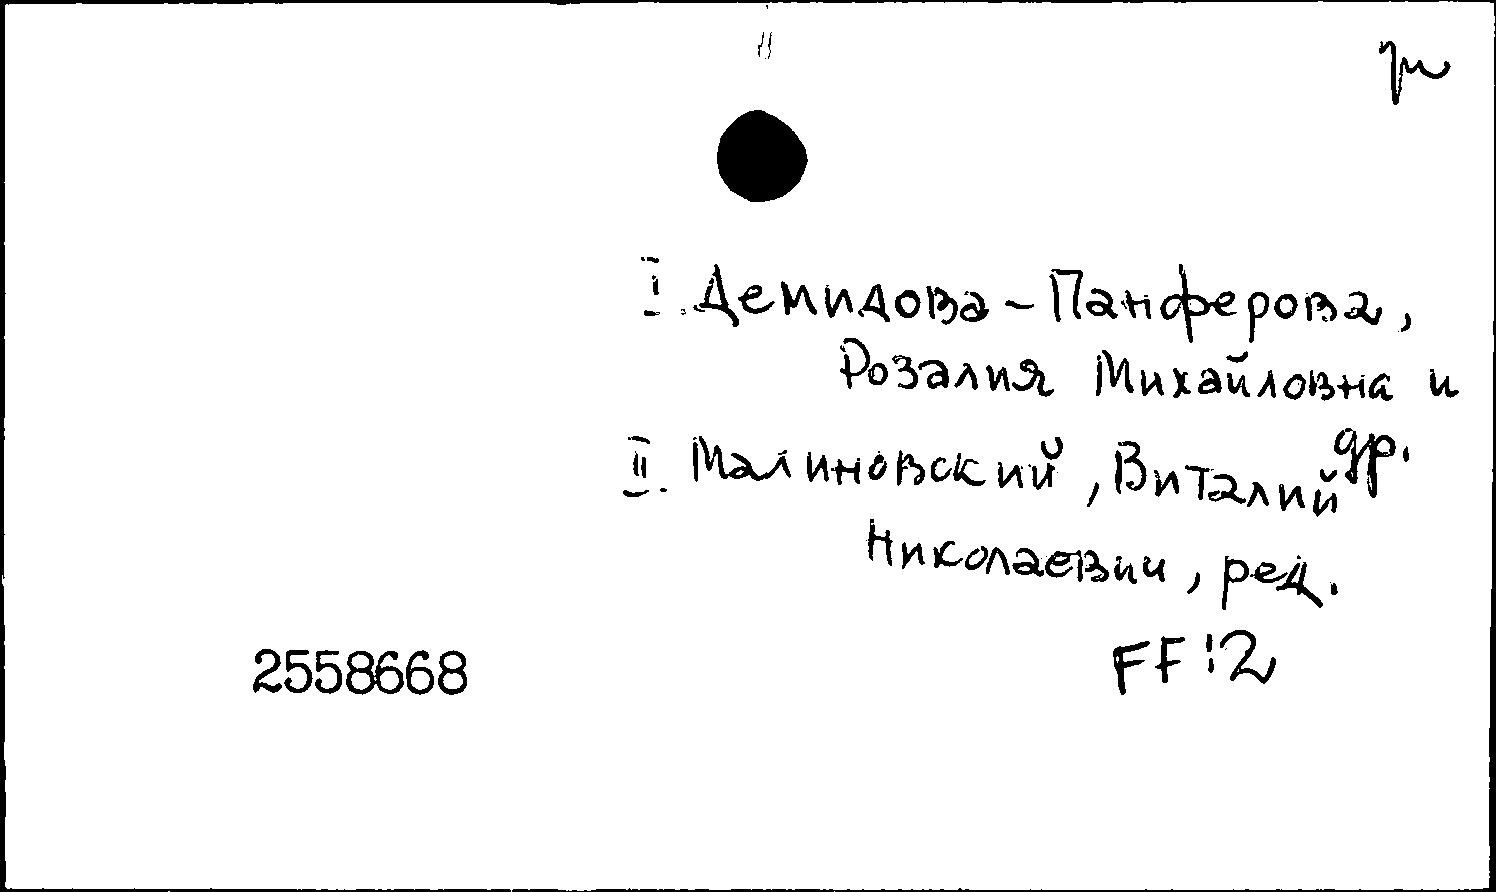 I. Демидова-Панферова,
Розалия Михайловна и
др.
II. Малиновский, Виталий
Николаевич, ред.
2558668
FF!2